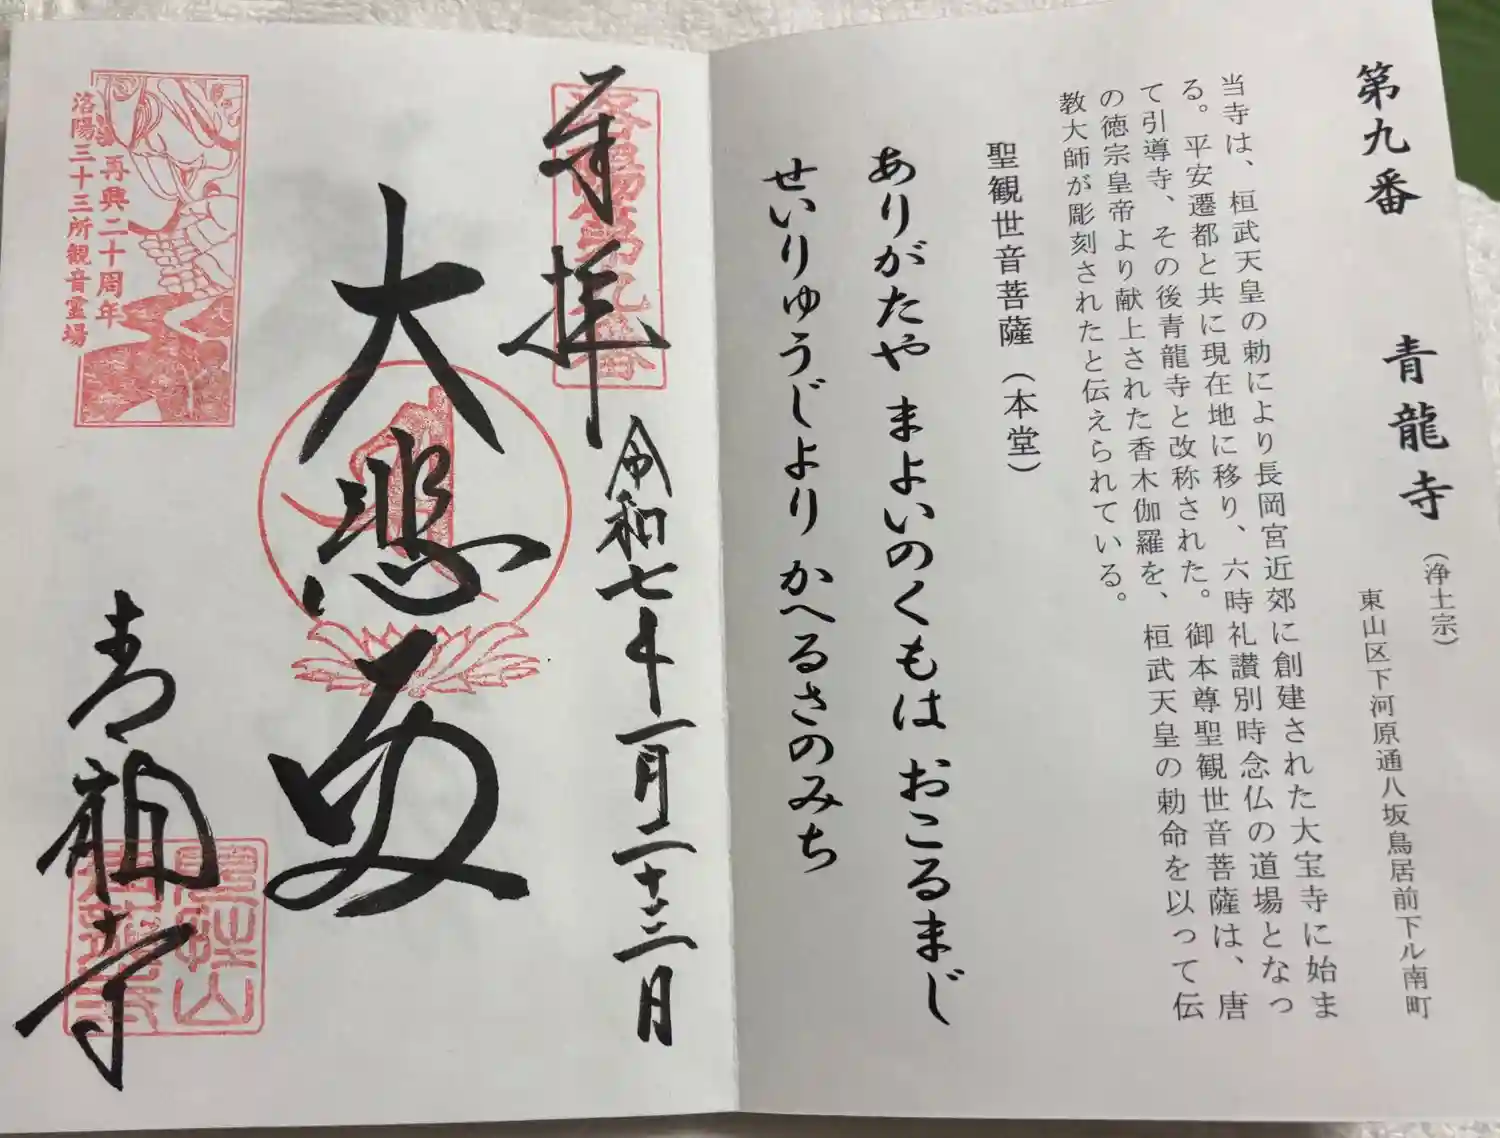 第九番 青龍寺（浄土宗）
東山区下河原通八坂鳥居前下ル南町
当寺は、桓武天皇の勅により長岡宮近郊に創建された大宝寺に始ま
る。平安遷都と共に現在地に移り、六時礼讃別時念仏の道場となっ
て引導寺、その後青龍寺と改称された。御本尊聖観世音菩薩は、唐
の徳宗皇帝より献上された香木伽羅を、桓武天皇の勅命を以って伝
教大師が彫刻されたと伝えられている。
聖観世音菩薩（本堂）
ありがたや まよいのくもは おこるまじ
せいりゅうじより かへるさのみち
奉拝
洛陽第九番
令和七年一月二十三日
大悲殿
青龍寺
再興二十周年
洛陽三十三所観音霊場